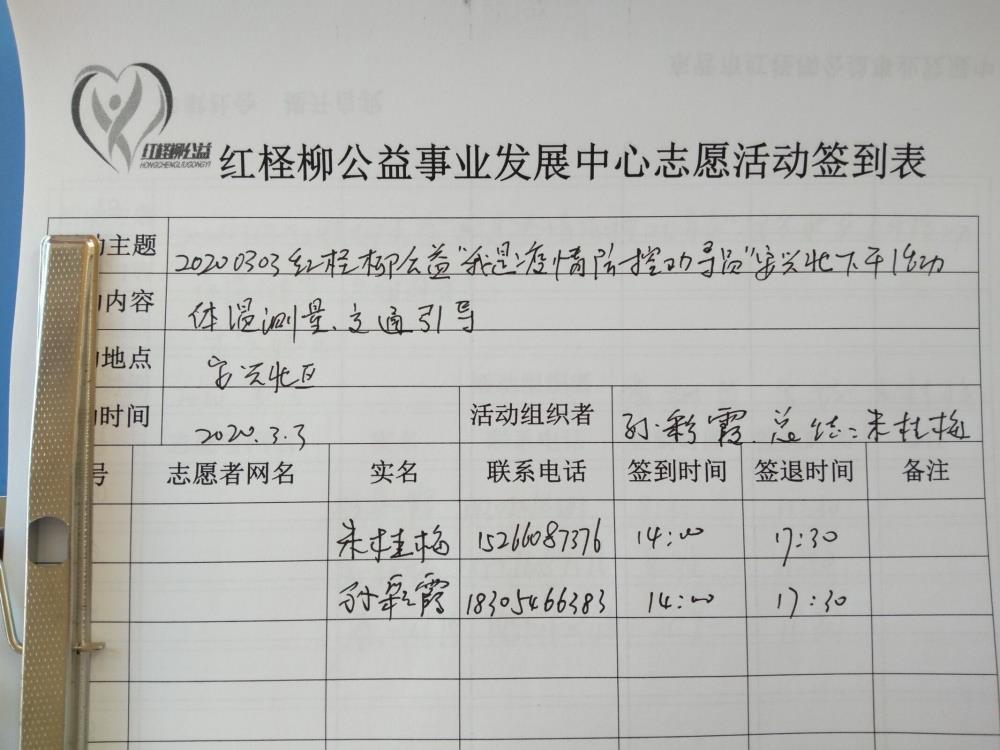 红柽柳公益
HONGCHENGLIUGONGYI
红柽柳公益事业发展中心志愿活动签到表
动主题 20200303红柽柳公益"我是疫情防控劝导员"安兴北下午活动
内容 体温测量、交通引导
地点 安兴北区
时间 2020.3.3 活动组织者 孙彩霞 总结:朱桂梅
号 志愿者网名 实名 联系电话 签到时间 签退时间 备注
朱桂梅 15266087376 14:00 17:30
孙彩霞 18305466383 14:00 17:30